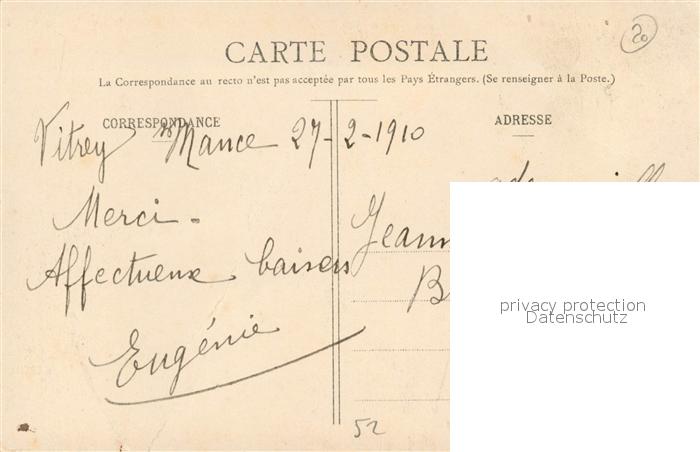 20
CARTE POSTALE
La Correspondance au recto n'est pas acceptée par tous les Pays Étrangers. (Se renseigner à la Poste.)
CORRESPONDANCE
ADRESSE
Vitrey Mance 27-2-1910
Merci -
Affectueux baisers
Eugénie
Jeann
B
52
privacy protection
Datenschutz